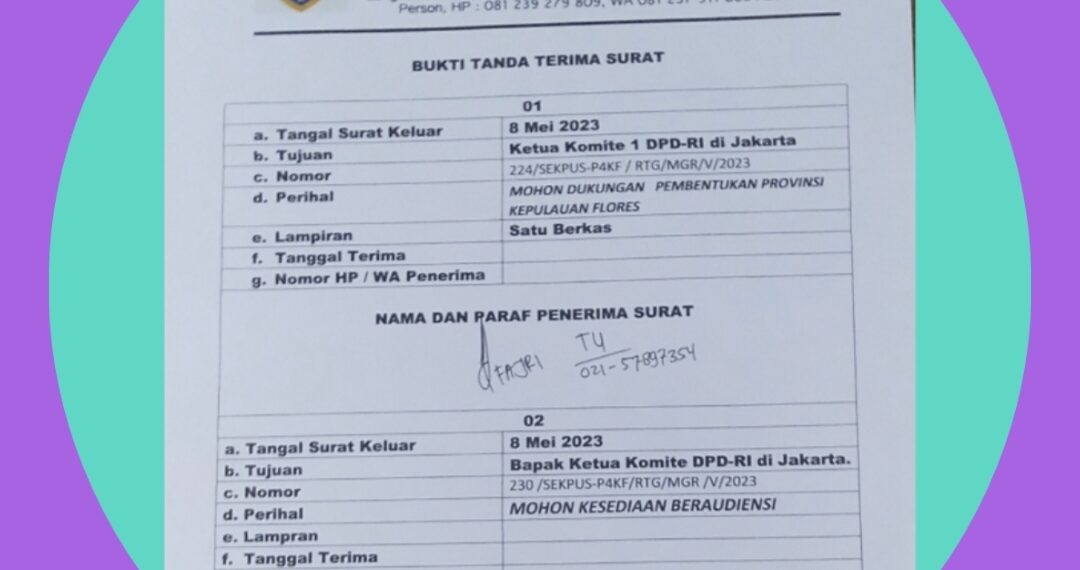 Person, HP : 081 239 279 809, WA 081
BUKTI TANDA TERIMA SURAT
01
a. Tangal Surat Keluar 8 Mei 2023
b. Tujuan Ketua Komite 1 DPD-RI di Jakarta
c. Nomor 224/SEKPUS-P4KF / RTG/MGR/V/2023
d. Perihal MOHON DUKUNGAN PEMBENTUKAN PROVINSI
KEPULAUAN FLORES
e. Lampiran Satu Berkas
f. Tanggal Terima
g. Nomor HP / WA Penerima
NAMA DAN PARAF PENERIMA SURAT
FAJRI TU
021-57897354
02
a. Tangal Surat Keluar 8 Mei 2023
b. Tujuan Bapak Ketua Komite DPD-RI di Jakarta.
c. Nomor 230 /SEKPUS-P4KF/RTG/MGR /V/2023
d. Perihal MOHON KESEDIAAN BERAUDIENSI
e. Lampran
f. Tanggal Terima